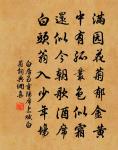 滿園花菊鬱金黃
中有孤叢色似霜
還似今朝歌酒席
白頭翁入少年場
白居易重陽席上賦白
菊